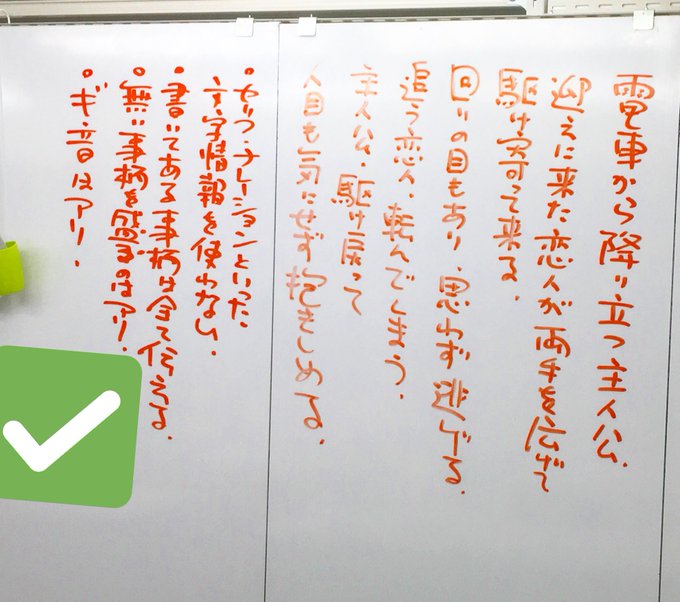 電車から降り立つ主人公.
迎えに来た恋人が両手を広げて
駆け寄って来る.
回りの目もあり 思わず逃げる.
追う恋人、転んでしまう.
主人公、駆け戻って
人目も気にせず抱きしめる.
・セリフ・ナレーションといった
文字情報を使わない.
・書いてある事柄は全て伝える.
・無い事柄を盛るのはアリ.
・ギ音はアリ.